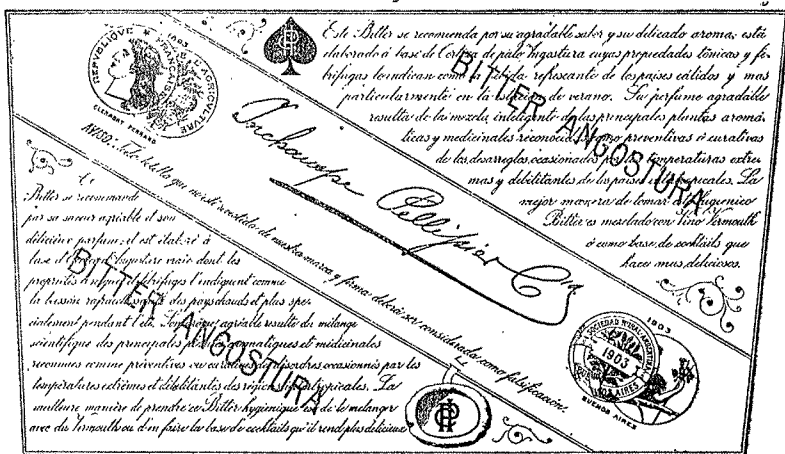 Este Bitter se recomienda por su agradable sabor y su delicado aroma; está
elaborado á base de Corteza de palo Angostura cuyas propiedades tónicas y fe-
brifugas lo indican como la bebida refrescante de los países cálidos y mas
particularmente en la estación de verano. Su perfume agradable
resulta de la mezcla inteligente de las principales plantas aromá-
ticas y medicinales reconocidas como preventivas ó curativas
de los desarreglos ocasionados por las temperaturas extre-
mas y debilitantes de los países intertropicales. La
mejor manera de tomar este higienico
Bitter es mezclado con Vino Vermouth
ó como base de cocktails que
hace mas delicioso.
BITTER ANGOSTURA
REPUBLIQUE FRANÇAISE
1903
AGRICULTURE
CLERMONT FERRAND
AVISO: Toda botella que no esté revestida de nuestra marca y firma deberá ser considerada como falsificación.
Inchauspe Pellissier Cia
Ce
Bitter se recommande
par sa saveur agréable et son
délicieux parfum; il est élaboré à
base d'écorce d'Angusture vraie dont les
propriétés toniques et fébrifuges l'indiquent comme
la boisson rafraichissante des pays chauds et plus spé-
cialement pendant l'été. Son arôme agréable resulte du mélange
scientifique des principales plantes aromatiques et médicinales
reconnues comme préventives ou curatives des désordres occasionnés par les
températures extrêmes et débilitantes des régions intertropicales. La
meilleure manière de prendre ce Bitter hygienique est de le mélanger
avec du Vermouth ou d'en faire la base de cocktails qu'il rend plus délicieux
BITTER ANGOSTURA
SOCIEDAD RURAL ARGENTINA
1903
BUENOS AIRES
1903
BUENOS AIRES